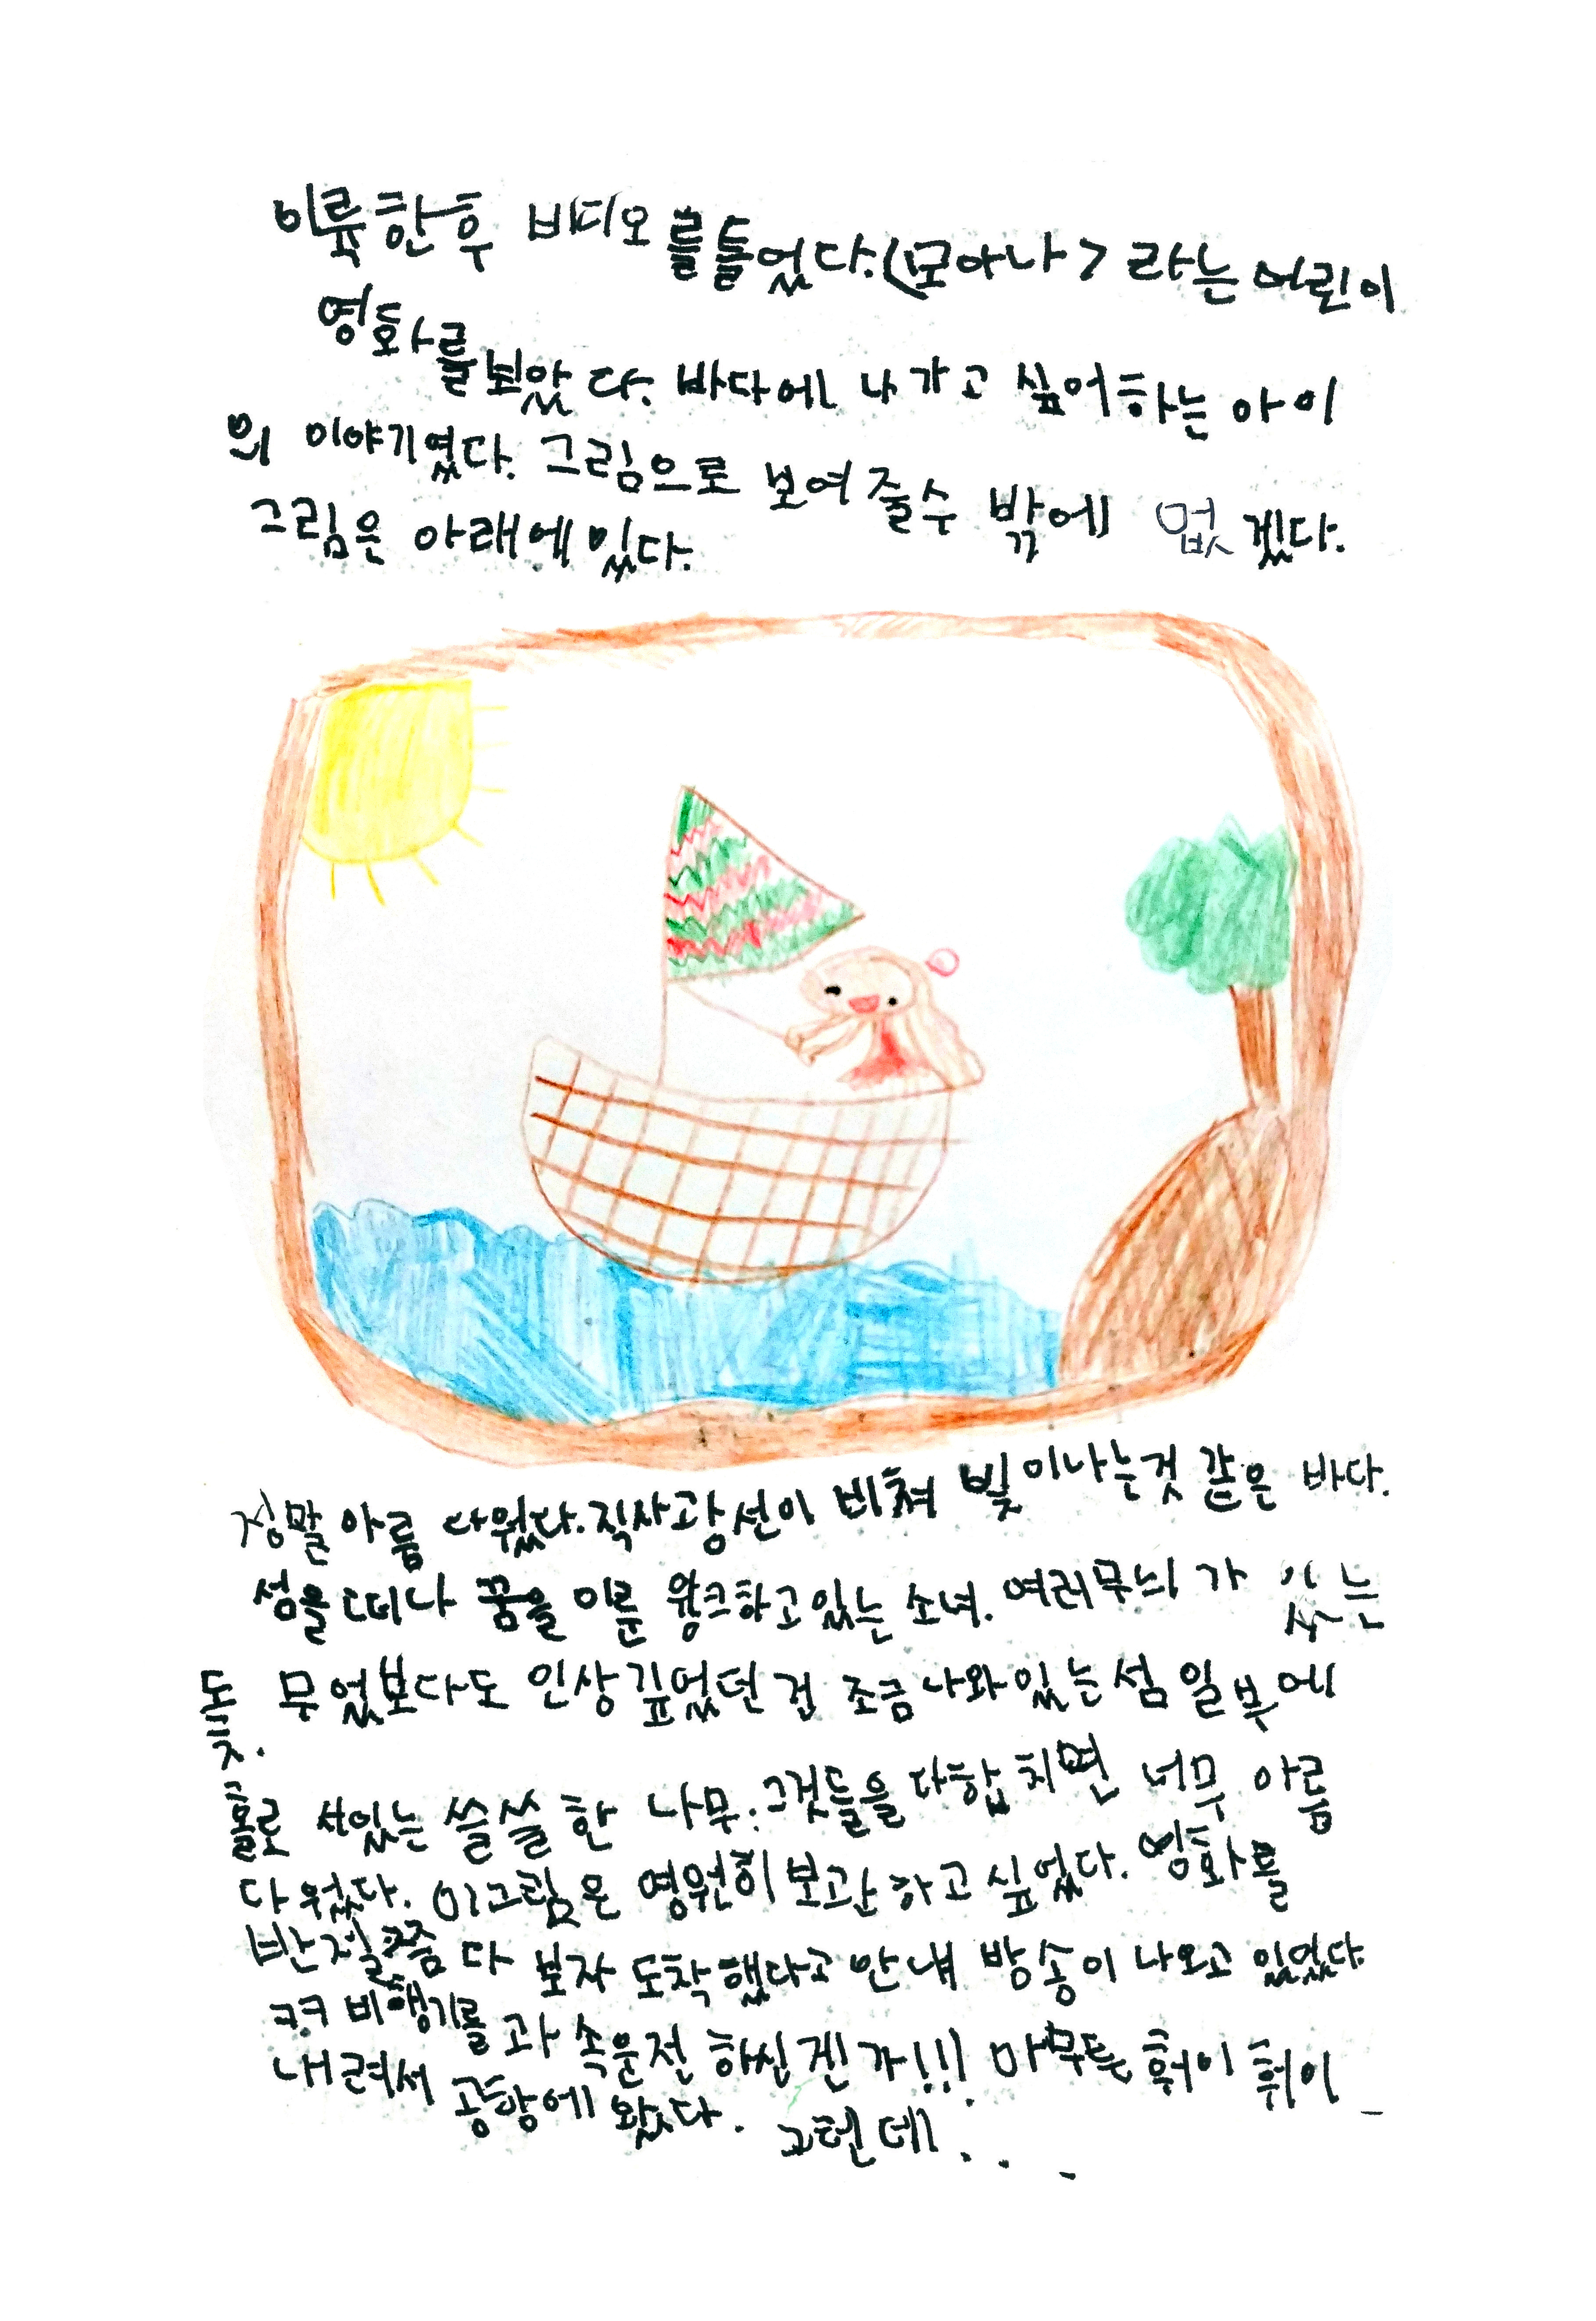 이륙한후 비디오를틀었다.<모아나> 라는 어린이
영화를보았다. 바다에 나가고 싶어하는 아이
의 이야기였다. 그림으로 보여줄수 밖에 없겠다.
그림은 아래에있다.
정말 아름 다웠다.직사광선이 비춰 빛이나는것 같은 바다.
섬을떠나 꿈을 이룬 윙크하고있는 소녀. 여러무늬가 있는
돛. 무엇보다도 인상깊었던 건 조금나와있는섬 일부에
홀로 서있는 쓸쓸한 나무.그것들을다합치면 너무 아름
다웠다. 이그림은 영원히보관하고싶었다. 영화를
반절쯤 다 보자 도착했다고 안내 방송이 나오고 있었다.
ㅋㅋ 비행기를 과속운전 하신겐가!!! 아무튼 휘이휘이
내려서 공항에 왔다. 그런데...